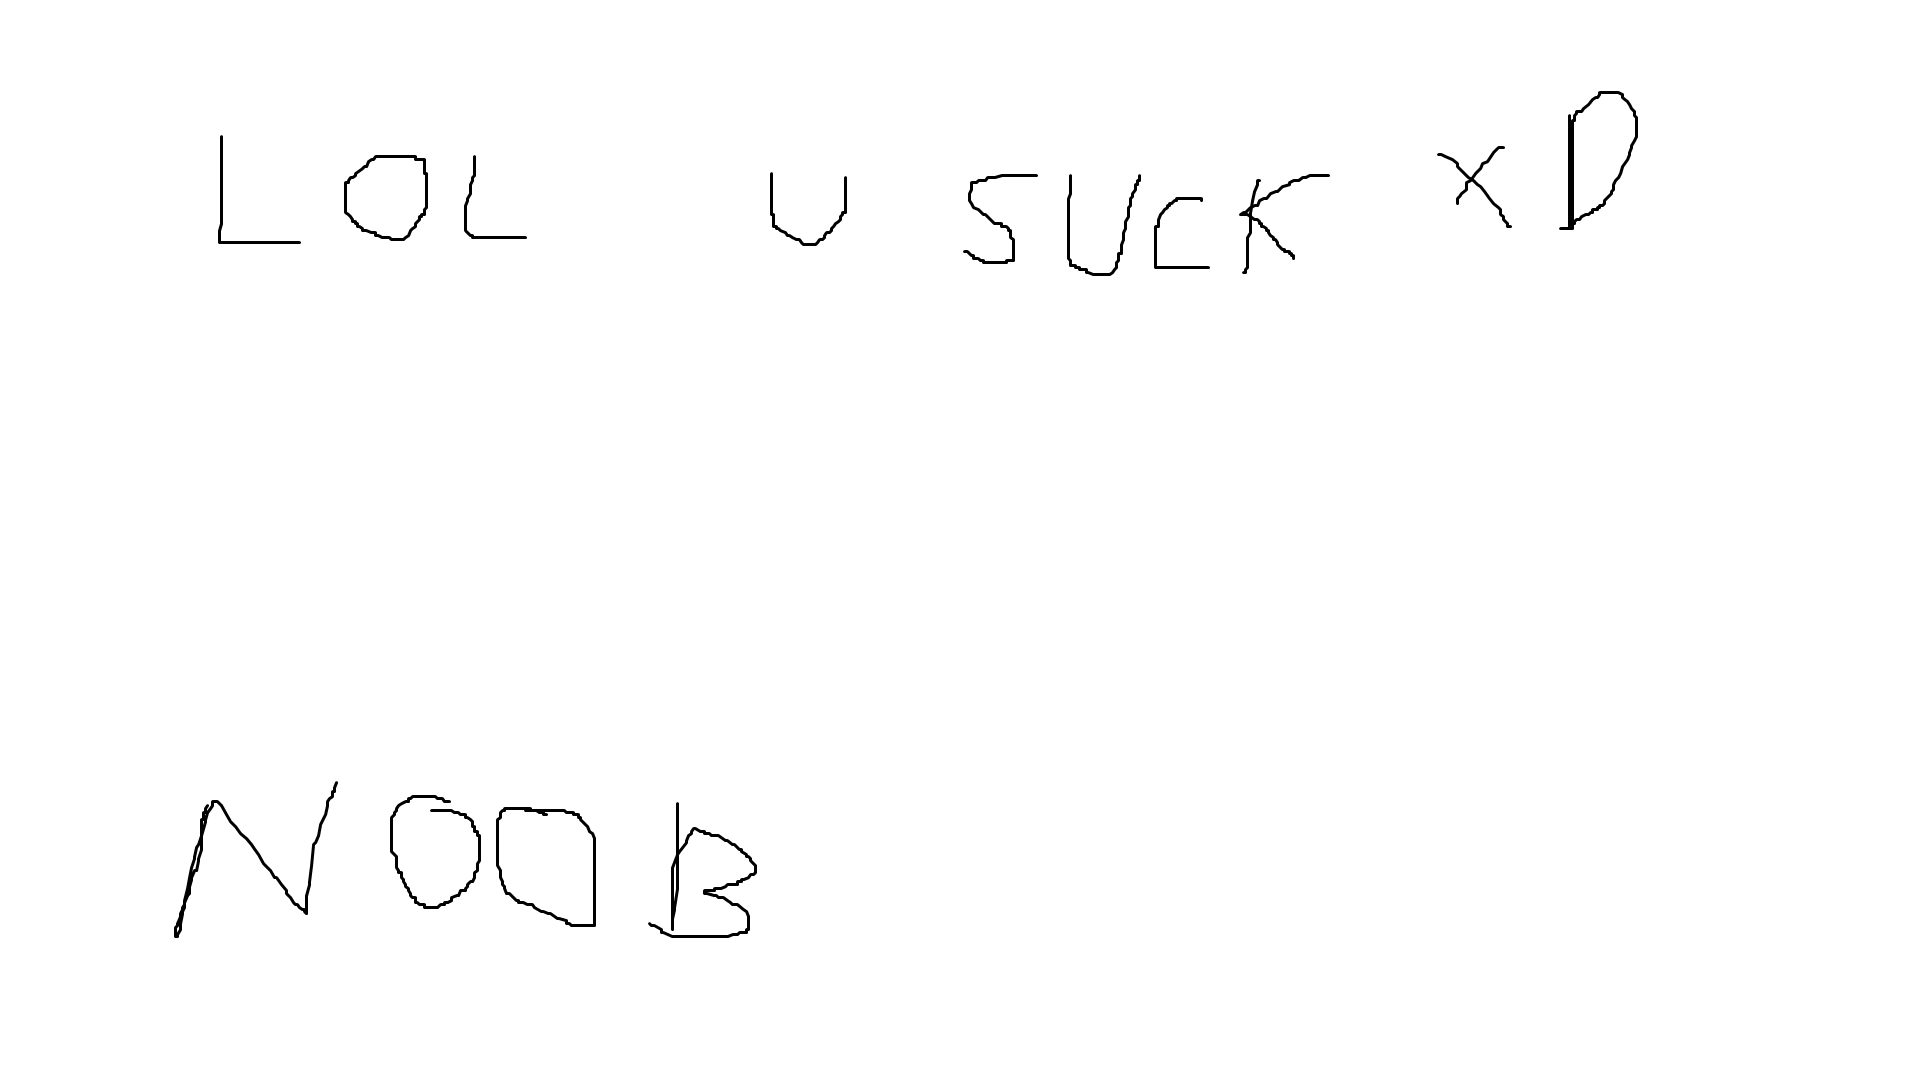 LOL U SUCK XD
NOOB